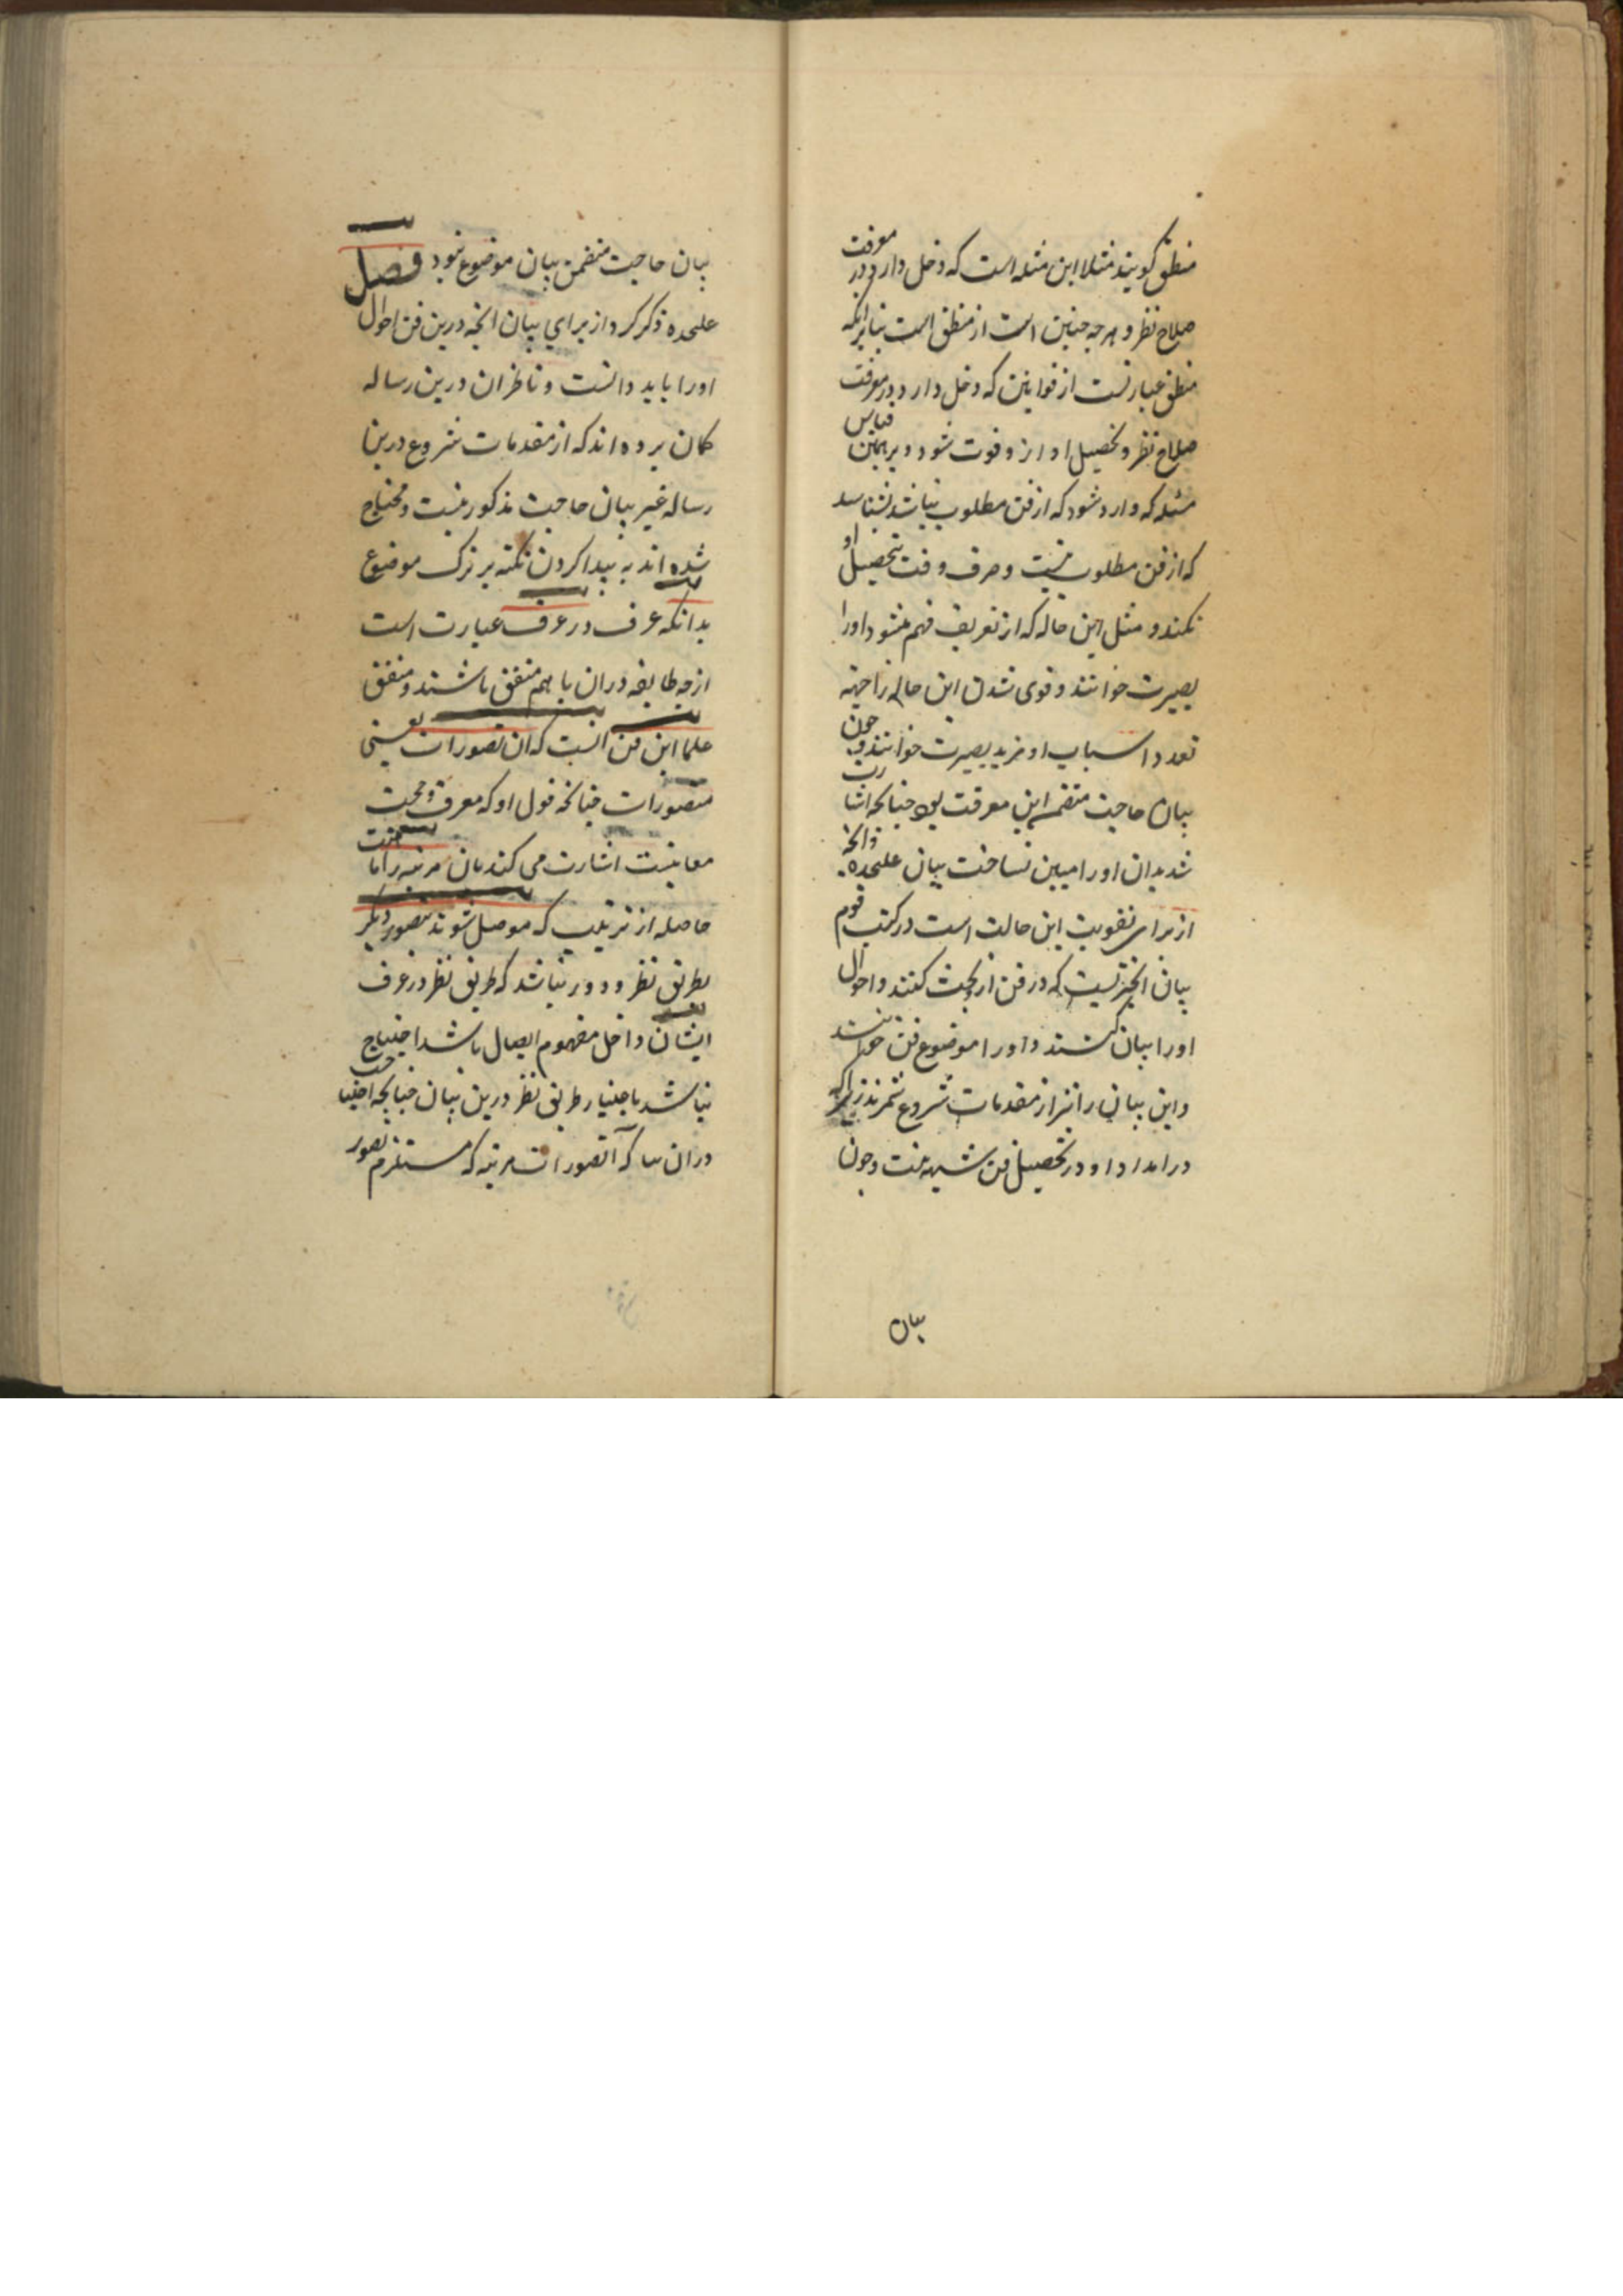 منطق کویند مثلا این مثله است که دخل دارد در معرفت
صلاح نظر و هرچه چنین است از منطق است بنابر انکه
منطق عبارتست از قوانین که دخل دارد در معرفت
صلاح نظر و تحصیل او ازو فوت شود و بر همین قیاس
مسئله که وارد شود که از فن مطلوب نباشد بشناسد
که از فن مطلوب نیست و صرف وقت بتحصیل او
نکند و مثل این حاله که از تعریف فهم میشود او را
بصیرت خوانند و قوی شدن این حاله را جهة
تعدد اسباب او مزید بصیرت خوانند و چون
بیان حاجت متضمن این معرفت بود چنانچه اشارت
شد بدان او را مبین نساخت ببیان علیحده و انچه
از برای تقویت این حالت است در کتب قوم
بیان انچیزیست که در فن ازو بحث کنند و احوال
او را بیان کنند و او را موضوع فن خوانند
و این بیان را نیز از مقدمات شروع شمرند زیرا که
در امداد او در تحصیل فن شبهه نیست و چون
بیان
بیان حاجت متضمن بیان موضوع نبود فصل
علیحده ذکر کرد از برای بیان انچه درین فن احوال
او را باید دانست و ناظران درین رساله
کمان برده اند که از مقدمات شروع درین
رساله غیر بیان حاجت مذکور نیست و محتاج
شده اند به پیدا کردن نکته بر ترک موضوع
بدانکه عرف در عرف عبارت است
ازچه طایفه دران با هم متفق باشند و متفق
علما این فن انست که ان تصورات یعنی
متصورات چنانچه قول او که معرف و حجت
معانیست اشارت می کند بان مرتبه را اما
حاصله از ترتیب که موصل شوند بتصور دیگر
بطریق نظر و دور نباشد که طریق نظر در عرف
ایشان داخل مفهوم ایصال باشد احتیاج
نباشد باختیار طریق نظر درین بیان چنانچه احتیاج
دران تصورات مرتبه که مستلزم تصور